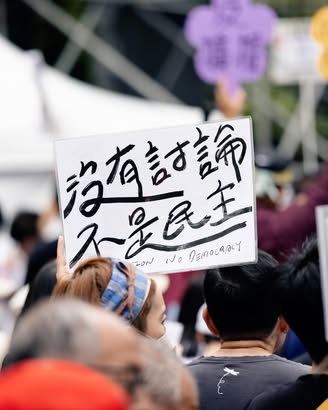 沒有討論
不是民主
NO DEMOCRACY